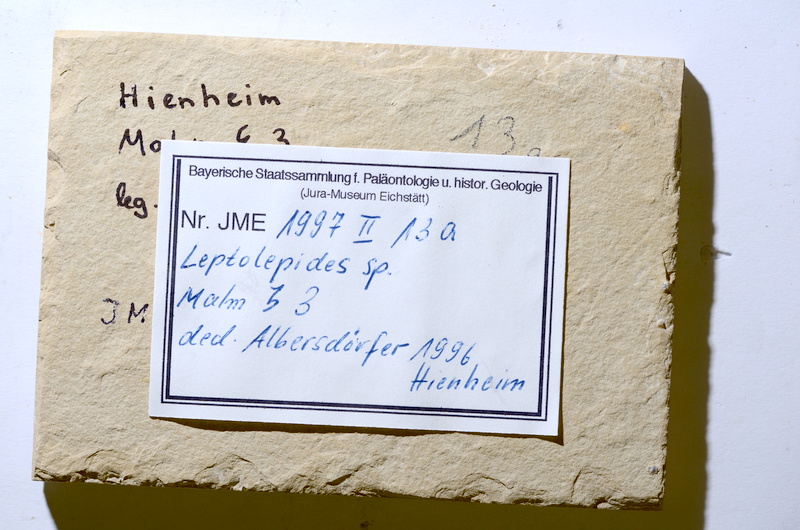 Hienheim
Malm ζ 3
13a
leg.
JM
Bayerische Staatssammlung f. Paläontologie u. histor. Geologie
(Jura-Museum Eichstätt)
Nr. JME 1997 II 13 a
Leptolepides sp.
Malm ζ 3
ded. Albersdörfer 1996
Hienheim